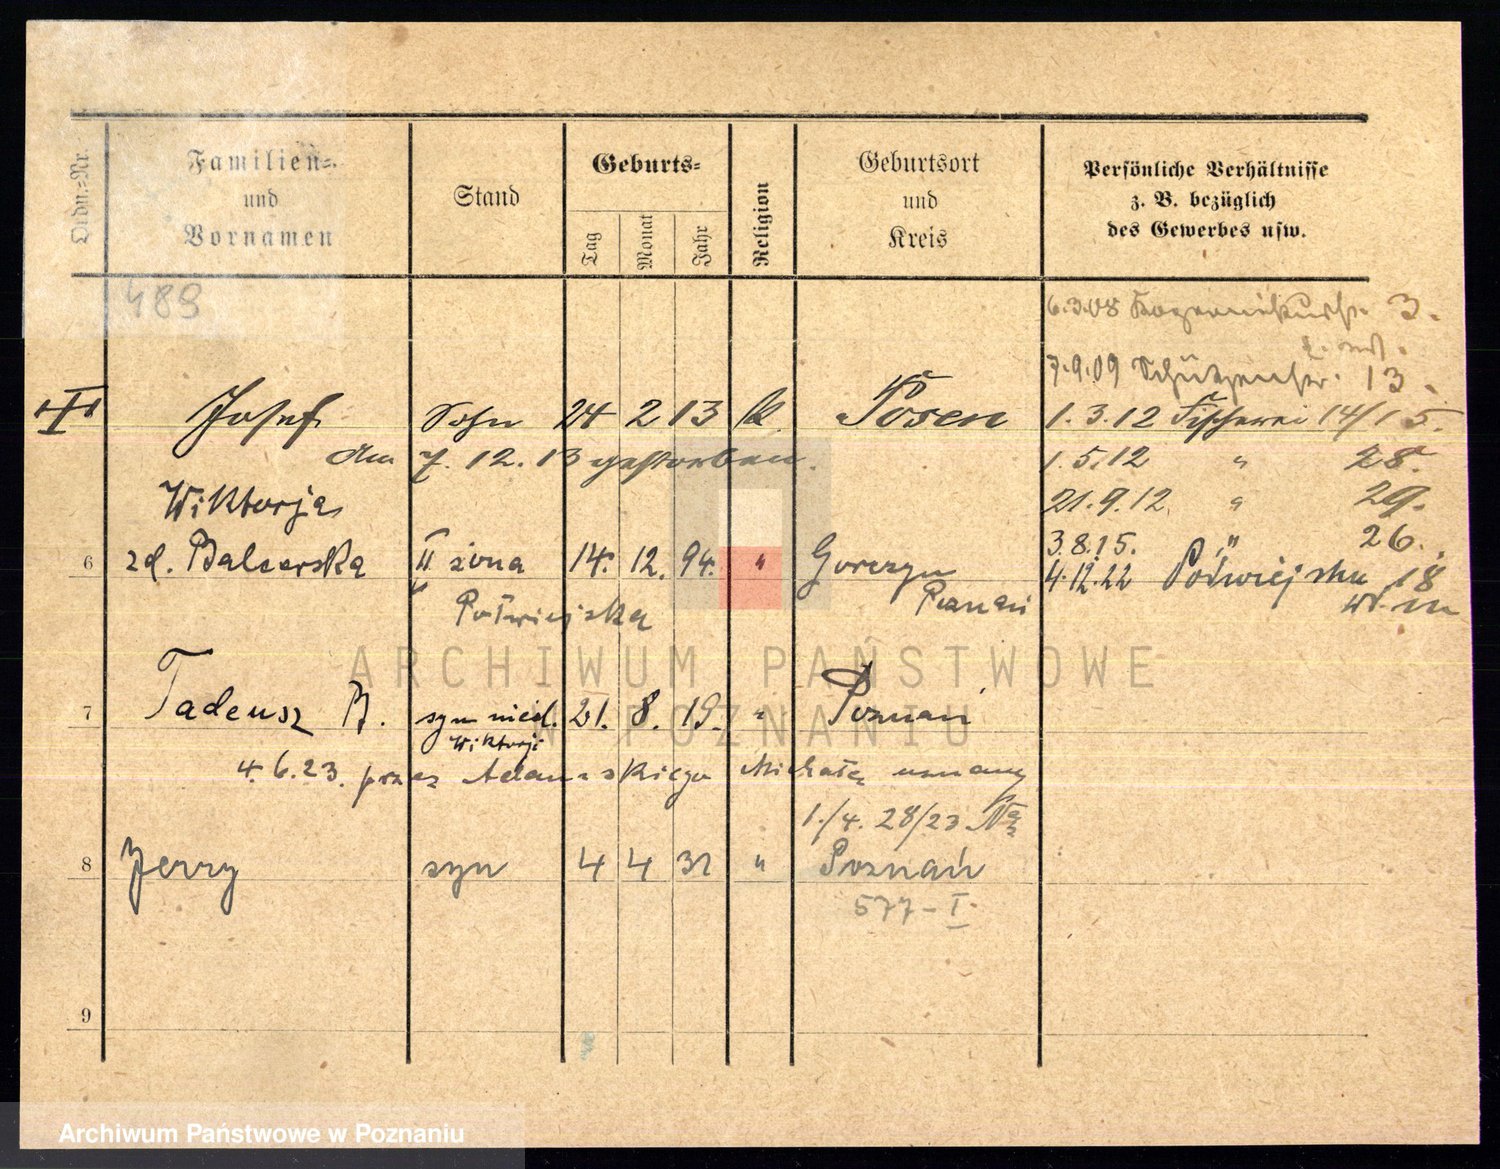 Ordn.-Nr.
Familien-
und
Vornamen
Stand
Geburts-
Tag
Monat
Jahr
Religion
Geburtsort
und
Kreis
Persönliche Verhältnisse
z. B. bezüglich
des Gewerbes usw.
489
6.3.08 3.
7.9.09 Schützenstr. 13.
Josef Sohn 24 2 13 k. Posen
1.3.12 Fischerei 14/15.
Am 7. 12. 13 gestorben.
1.5.12 " 28.
Wiktorja
21.9.12. " 29.
3.8.15. " 26.
6 zd. Balcerska II żona 14. 12. 94. " Gorczyn
Poznań
4.12.22 Półwiejska 18
Półwiejska
ARCHIWUM PAŃSTWOWE
W POZNANIU
7 Tadeusz B. syn nieśl. 21. 8. 19. " Poznań
Wiktorji
4.6.23. przez Adamskiego Michała uznany
1./4. 28/23
8 Jerzy syn 4 4 32 " Poznań
577-I.
9
Archiwum Państwowe w Poznaniu